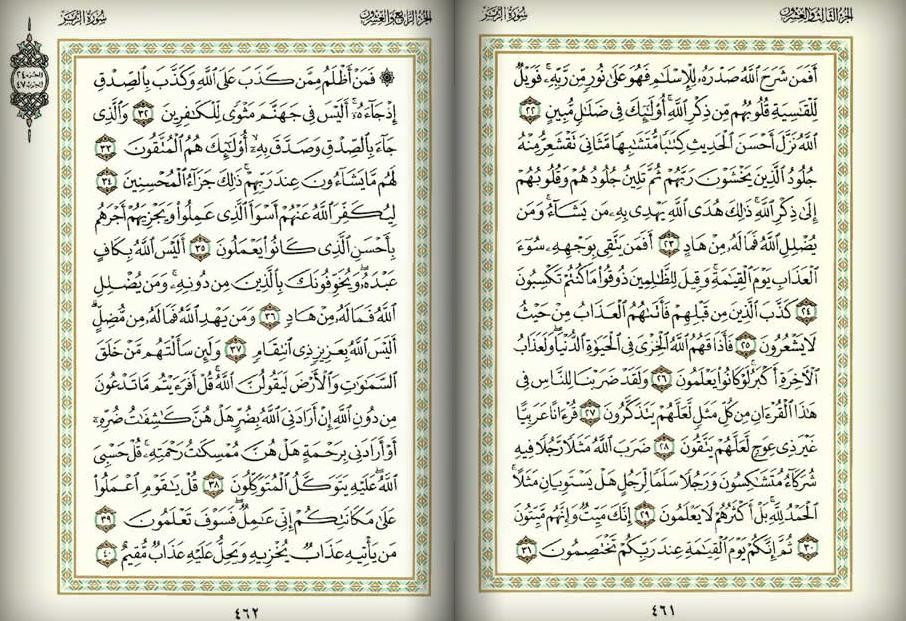 الجزء الثالث والعشرون
سورة الزمر
أَفَمَن شَرَحَ ٱللَّهُ صَدْرَهُۥ لِلْإِسْلَٰمِ فَهُوَ عَلَىٰ نُورٍ مِّن رَّبِّهِۦ ۚ فَوَيْلٌ
لِّلْقَٰسِيَةِ قُلُوبُهُم مِّن ذِكْرِ ٱللَّهِ ۚ أُو۟لَٰٓئِكَ فِى ضَلَٰلٍ مُّبِينٍ ٢٢
ٱللَّهُ نَزَّلَ أَحْسَنَ ٱلْحَدِيثِ كِتَٰبًا مُّتَشَٰبِهًا مَّثَانِىَ تَقْشَعِرُّ مِنْهُ
جُلُودُ ٱلَّذِينَ يَخْشَوْنَ رَبَّهُمْ ثُمَّ تَلِينُ جُلُودُهُمْ وَقُلُوبُهُمْ
إِلَىٰ ذِكْرِ ٱللَّهِ ۚ ذَٰلِكَ هُدَى ٱللَّهِ يَهْدِى بِهِۦ مَن يَشَآءُ ۚ وَمَن
يُضْلِلِ ٱللَّهُ فَمَا لَهُۥ مِنْ هَادٍ ٢٣ أَفَمَن يَتَّقِى بِوَجْهِهِۦ سُوٓءَ
ٱلْعَذَابِ يَوْمَ ٱلْقِيَٰمَةِ ۚ وَقِيلَ لِلظَّٰلِمِينَ ذُوقُوا۟ مَا كُنتُمْ تَكْسِبُونَ
٢٤ كَذَّبَ ٱلَّذِينَ مِن قَبْلِهِمْ فَأَتَىٰهُمُ ٱلْعَذَابُ مِنْ حَيْثُ
لَا يَشْعُرُونَ ٢٥ فَأَذَاقَهُمُ ٱللَّهُ ٱلْخِزْىَ فِى ٱلْحَيَوٰةِ ٱلدُّنْيَا ۖ وَلَعَذَابُ
ٱلْءَاخِرَةِ أَكْبَرُ ۚ لَوْ كَانُوا۟ يَعْلَمُونَ ٢٦ وَلَقَدْ ضَرَبْنَا لِلنَّاسِ فِى
هَٰذَا ٱلْقُرْءَانِ مِن كُلِّ مَثَلٍ لَّعَلَّهُمْ يَتَذَكَّرُونَ ٢٧ قُرْءَانًا عَرَبِيًّا
غَيْرَ ذِى عِوَجٍ لَّعَلَّهُمْ يَتَّقُونَ ٢٨ ضَرَبَ ٱللَّهُ مَثَلًا رَّجُلًا فِيهِ
شُرَكَآءُ مُتَشَٰكِسُونَ وَرَجُلًا سَلَمًا لِّرَجُلٍ هَلْ يَسْتَوِيَانِ مَثَلًا ۚ
ٱلْحَمْدُ لِلَّهِ ۚ بَلْ أَكْثَرُهُمْ لَا يَعْلَمُونَ ٢٩ إِنَّكَ مَيِّتٌ وَإِنَّهُم مَّيِّتُونَ
٣٠ ثُمَّ إِنَّكُمْ يَوْمَ ٱلْقِيَٰمَةِ عِندَ رَبِّكُمْ تَخْتَصِمُونَ ٣١
٤٦١
الجزء الرابع والعشرون
سورة الزمر
۞ فَمَنْ أَظْلَمُ مِمَّن كَذَبَ عَلَى ٱللَّهِ وَكَذَّبَ بِٱلصِّدْقِ
إِذْ جَآءَهُۥٓ ۚ أَلَيْسَ فِى جَهَنَّمَ مَثْوًى لِّلْكَٰفِرِينَ ٣٢ وَٱلَّذِى
جَآءَ بِٱلصِّدْقِ وَصَدَّقَ بِهِۦٓ ۙ أُو۟لَٰٓئِكَ هُمُ ٱلْمُتَّقُونَ ٣٣
لَهُم مَّا يَشَآءُونَ عِندَ رَبِّهِمْ ۚ ذَٰلِكَ جَزَآءُ ٱلْمُحْسِنِينَ ٣٤
لِيُكَفِّرَ ٱللَّهُ عَنْهُمْ أَسْوَأَ ٱلَّذِى عَمِلُوا۟ وَيَجْزِيَهُمْ أَجْرَهُم
بِأَحْسَنِ ٱلَّذِى كَانُوا۟ يَعْمَلُونَ ٣٥ أَلَيْسَ ٱللَّهُ بِكَافٍ
عَبْدَهُۥ ۖ وَيُخَوِّفُونَكَ بِٱلَّذِينَ مِن دُونِهِۦ ۚ وَمَن يُضْلِلِ
ٱللَّهُ فَمَا لَهُۥ مِنْ هَادٍ ٣٦ وَمَن يَهْدِ ٱللَّهُ فَمَا لَهُۥ مِن مُّضِلٍّ ۗ
أَلَيْسَ ٱللَّهُ بِعَزِيزٍ ذِى ٱنتِقَامٍ ٣٧ وَلَئِن سَأَلْتَهُم مَّنْ خَلَقَ
ٱلسَّمَٰوَٰتِ وَٱلْأَرْضَ لَيَقُولُنَّ ٱللَّهُ ۚ قُلْ أَفَرَءَيْتُم مَّا تَدْعُونَ
مِن دُونِ ٱللَّهِ إِنْ أَرَادَنِىَ ٱللَّهُ بِضُرٍّ هَلْ هُنَّ كَٰشِفَٰتُ ضُرِّهِۦٓ
أَوْ أَرَادَنِى بِرَحْمَةٍ هَلْ هُنَّ مُمْسِكَٰتُ رَحْمَتِهِۦ ۚ قُلْ حَسْبِىَ
ٱللَّهُ ۖ عَلَيْهِ يَتَوَكَّلُ ٱلْمُتَوَكِّلُونَ ٣٨ قُلْ يَٰقَوْمِ ٱعْمَلُوا۟
عَلَىٰ مَكَانَتِكُمْ إِنِّى عَٰمِلٌ ۖ فَسَوْفَ تَعْلَمُونَ ٣٩
مَن يَأْتِيهِ عَذَابٌ يُخْزِيهِ وَيَحِلُّ عَلَيْهِ عَذَابٌ مُّقِيمٌ ٤٠
٤٦٢